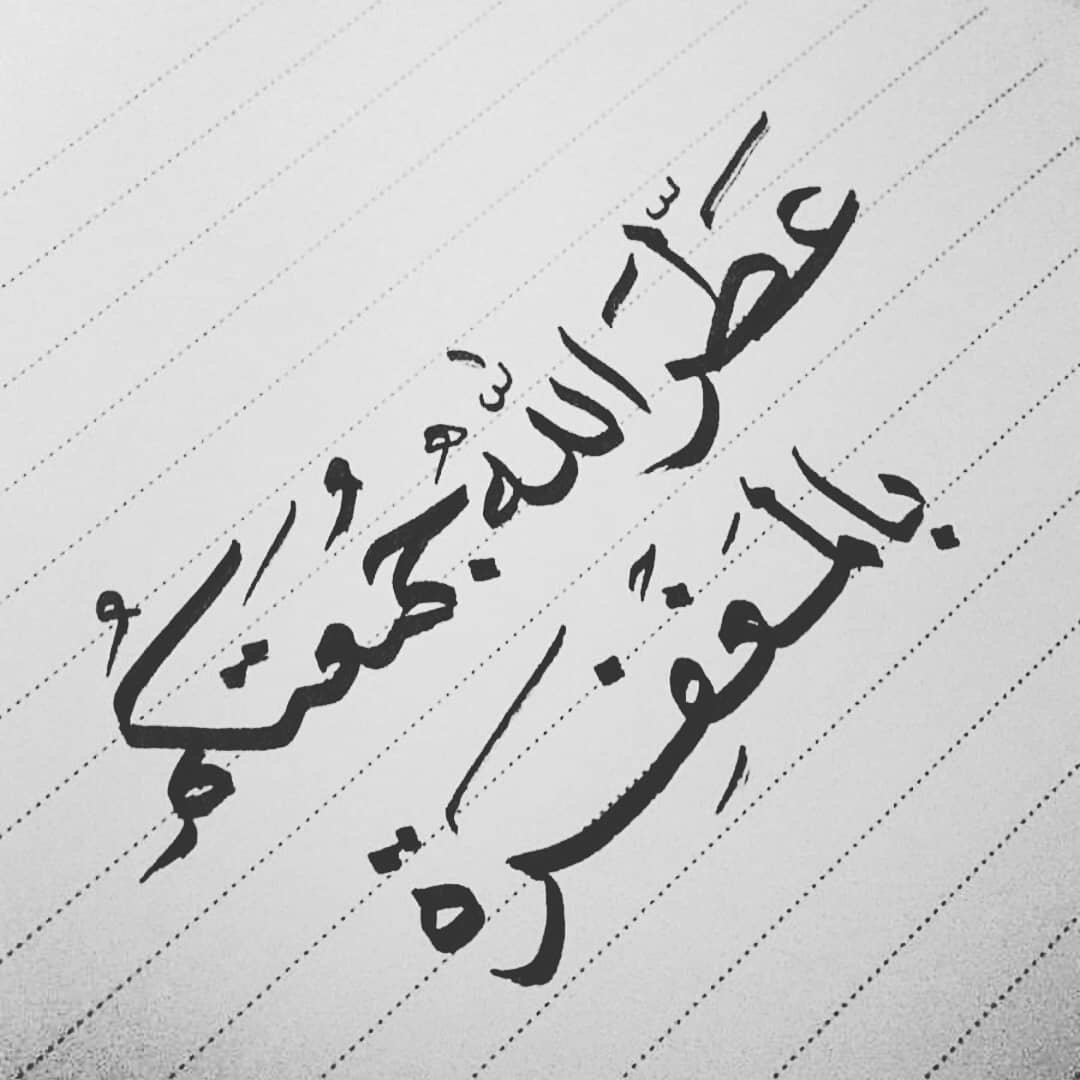 عَطَّرَ اللّٰهُ جُمُعَتَكُمْ
بالمَغفِرَة